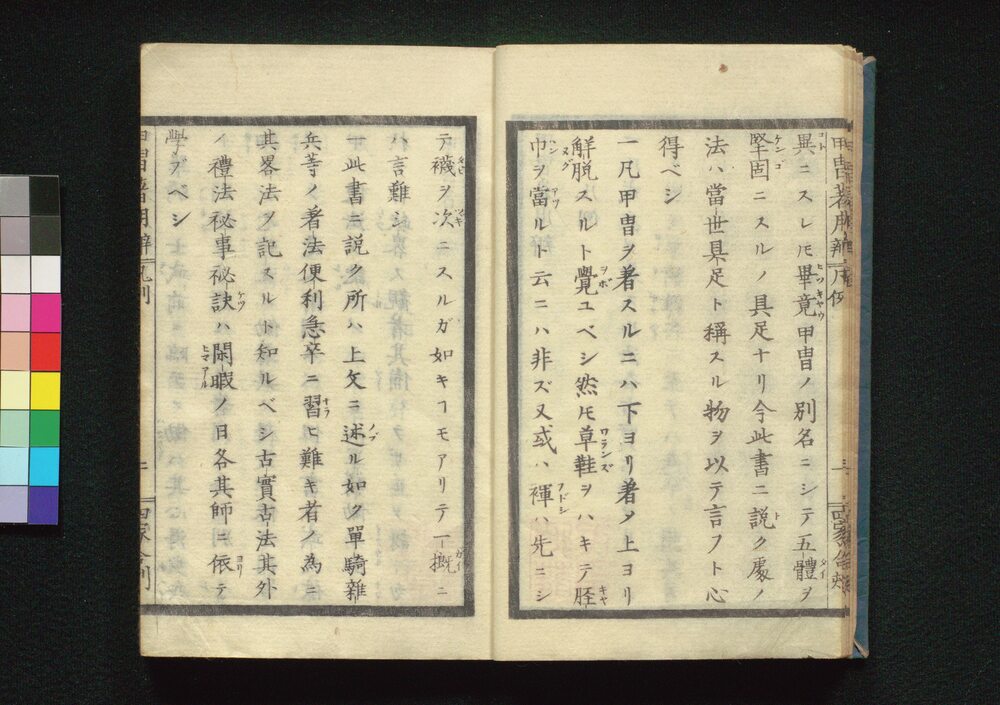 異ニスレ𪜈畢竟甲冑ノ別名ニシテ五體ヲ
堅固ニスルノ具足ナリ今此書ニ説ク處ノ
法ハ當世具足ト稱スル物ヲ以テ言フト心
得ベシ
一凡甲冑ヲ著スルニハ下ヨリ著メ上ヨリ
解脱スルト覺ユベシ然𪜈草鞋ヲハキテ脛
巾ヲ當ルト云ニハ非ズ又或ハ褌ハ先ニシ
テ襪ヲ次ニスルガ如キヿモアリテ一概ニ
ハ言難シ
一此書ニ説ク所ハ上文ニ述ル如ク單騎雜
兵等ノ著法便利急卒ニ習ヒ難キ者ノ為ニ
其畧法ヲ記スルト知ルベシ古實古法其外
禮法祕事祕訣ハ閑暇ノ日各其師ニ依テ
學ブベシ